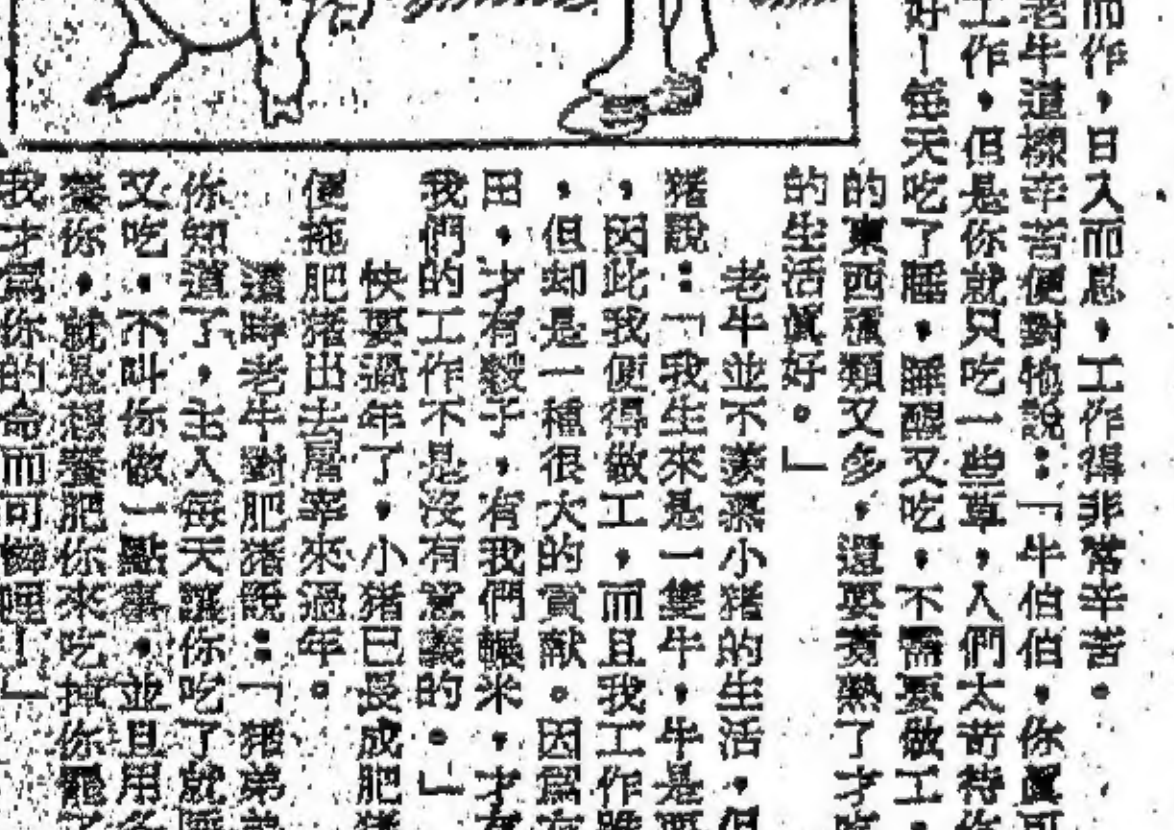 而作，日入而息，工作得非常辛苦。
老牛這樣辛苦便對牠說：「牛伯伯，你真可
工作，但是你就只吃一些草，人們太苛待你
好！每天吃了睡，睡醒又吃，不需要做工，
的東西種類又多，還要煮熟了才吃
的生活真好。」
老牛並不羨慕小猪的生活，但
猪說：「我生來是一隻牛，牛是要
，因此我便得做工，而且我工作雖
，但却是一種很大的貢献。因爲有
田，才有穀子，有我們輾米，才有
我們的工作不是沒有意義的。」
快要過年了，小猪已長成肥猪
便拖肥猪出去屠宰來過年。
這時老牛對肥猪說：「猪弟弟
你知道了，主人每天讓你吃了就睡
又吃，不叫你做一點事，並且用
養你，就是想養肥你來吃掉你罷了
我才爲你的命而可憐哩！」